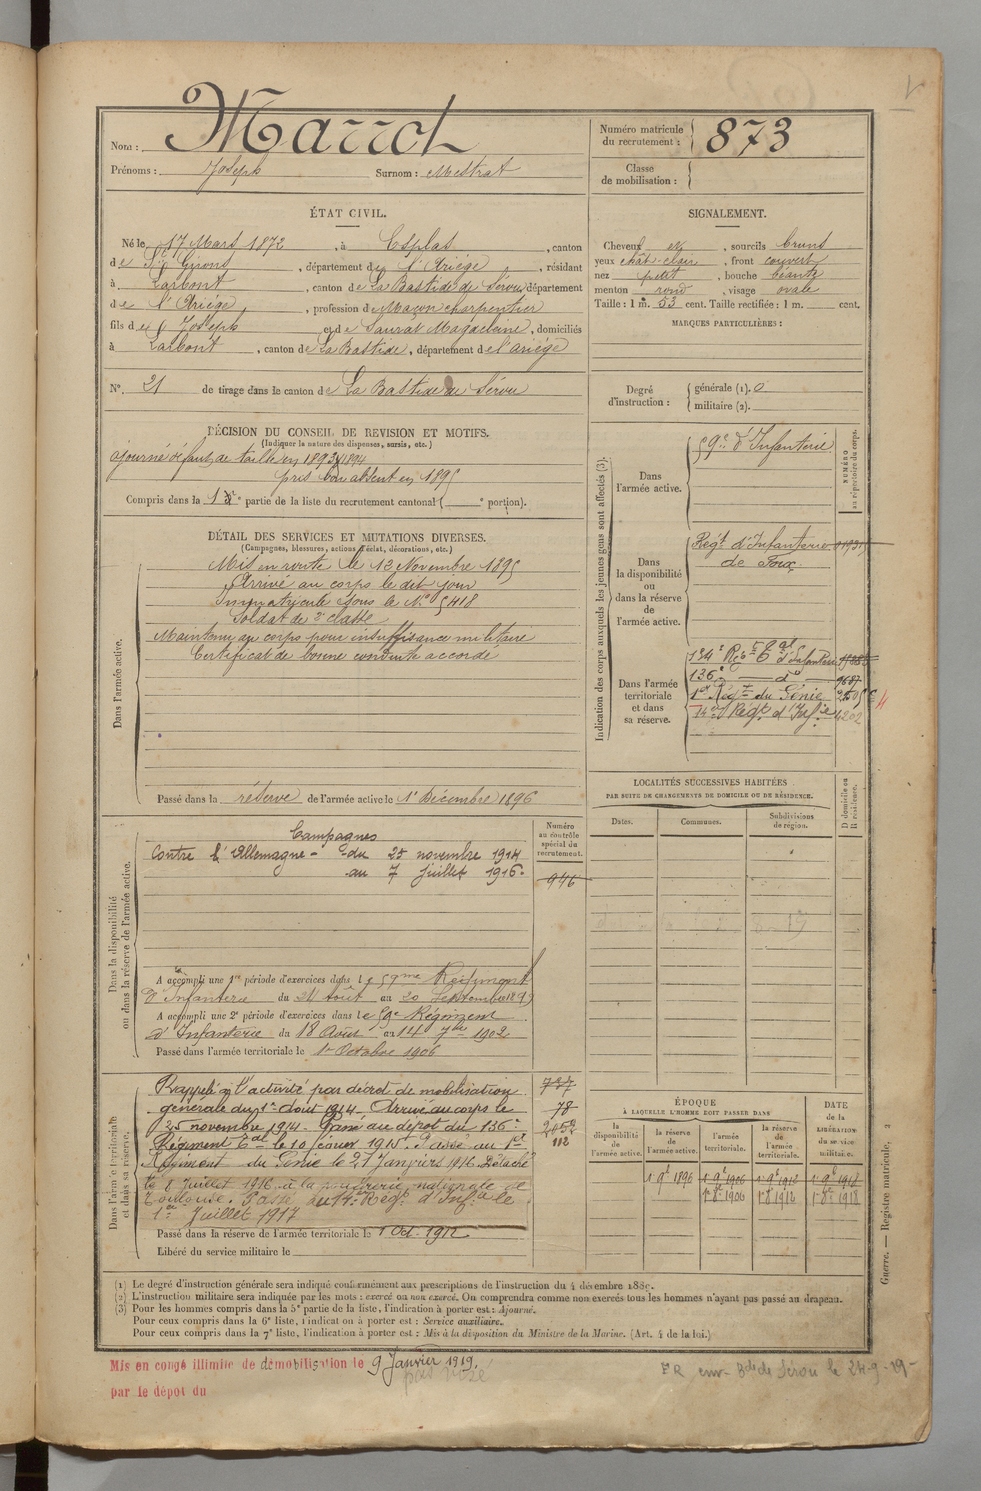 Nom : Marrot
Prénoms : Joseph Surnom : Mestrat
Numéro matricule du recrutement : 873
Classe de mobilisation :
ÉTAT CIVIL.
Né le 17 Mars 1872, à Esplas, canton
de St Girons, département de l'Ariège, résidant
à Larbont, canton de La Bastide de Sérou, département
de l'Ariège, profession de Maçon charpentier
fils de Joseph et de Saurat Magdeleine, domiciliés
à Larbont, canton de La Bastide, département de l'ariège
N° 21 de tirage dans le canton de La Bastide de Sérou
SIGNALEMENT.
Cheveux et, sourcils bruns
yeux chât-clair, front couvert
nez petit, bouche béante
menton rond, visage ovale
Taille : 1 m. 53 cent. Taille rectifiée : 1 m. cent.
MARQUES PARTICULIÈRES :
Degré d'instruction :
générale (1). 0
militaire (2).
DÉCISION DU CONSEIL DE REVISION ET MOTIFS.
(Indiquer la nature des dispenses, sursis, etc.)
ajourné défaut de taille en 1893 1894
pris bon absent en 1895
Compris dans la 1e partie de la liste du recrutement cantonal ( e portion).
DÉTAIL DES SERVICES ET MUTATIONS DIVERSES.
(Campagnes, blessures, actions d'éclat, décorations, etc.)
Dans l'armée active.
Mis en route le 12 Novembre 1895
Arrivé au corps le dit jour
Immatriculé sous le N° 5418
Soldat de 2e classe
Maintenu au corps pour insuffisance militaire
Certificat de bonne conduite accordé
Passé dans la réserve de l'armée active le 1er Décembre 1896
Indication des corps auxquels les jeunes gens sont affectés (3).
NUMÉRO au répertoire du corps.
Dans l'armée active.
59e d'Infanterie
Dans la disponibilité ou dans la réserve de l'armée active.
Régt d'Infanterie
de Foix
Dans l'armée territoriale et dans sa réserve.
134e Régt Tal d'Infanterie
136e do 9687
1er Régt du Génie
14e Régt d'Infie 4202
LOCALITÉS SUCCESSIVES HABITÉES
PAR SUITE DE CHANGEMENTS DE DOMICILE OU DE RÉSIDENCE.
Dates. Communes. Subdivisions de région. D domicile ou R résidence.
Dans la disponibilité ou dans la réserve de l'armée active.
Numéro au contrôle spécial du recrutement.
946
Campagnes
Contre l'Allemagne - du 25 novembre 1914
au 7 juillet 1916.
A accompli une 1re période d'exercices dans le 59me Régiment
d'Infanterie du 24 août au 20 Septembre 1899
A accompli une 2e période d'exercices dans le 59e Régiment
d'Infanterie du 18 Août au 14 7bre 1902
Passé dans l'armée territoriale le 1er Octobre 1906
Dans l'armée territoriale et dans sa réserve.
737
78
2052
112
Rappelé à l'activité par décret de mobilisation
générale du 1er Août 1914. Arrivé au corps le
25 novembre 1914. Passé au dépôt du 136e
Régiment Tal le 10 février 1915. Passé au 1er
Régiment du Génie le 21 Janviers 1916. Détaché
le 8 juillet 1916 à la poudrerie nationale de
Toulouse. Passé au 14e Régt d'Infie le
1er Juillet 1917
Passé dans la réserve de l'armée territoriale le 1 Oct. 1912
Libéré du service militaire le
ÉPOQUE
À LAQUELLE L'HOMME DOIT PASSER DANS
la disponibilité de l'armée active. la réserve de l'armée active. l'armée territoriale. la réserve de l'armée territoriale.
DATE de la LIBÉRATION du service militaire.
1 9e 1896 1 9e 1906 1 9e 1912 1 9e 1918
1r 8e 1906 1r 8e 1912 1r 8e 1918
Guerre. — Registre matricule.
(1) Le degré d'instruction générale sera indiqué conformément aux prescriptions de l'instruction du 4 décembre 1889.
(2) L'instruction militaire sera indiquée par les mots : exercé ou non exercé. On comprendra comme non exercés tous les hommes n'ayant pas passé au drapeau.
(3) Pour les hommes compris dans la 5e partie de la liste, l'indication à porter est : Ajourné.
Pour ceux compris dans la 6e liste, l'indication à porter est : Service auxiliaire.
Pour ceux compris dans la 7e liste, l'indication à porter est : Mis à la disposition du Ministre de la Marine. (Art. 4 de la loi.)
Mis en congé illimité de démobilisation le 9 Janvier 1919.
par le dépôt du pas visé
env. Bde de Sérou le 24-9-19